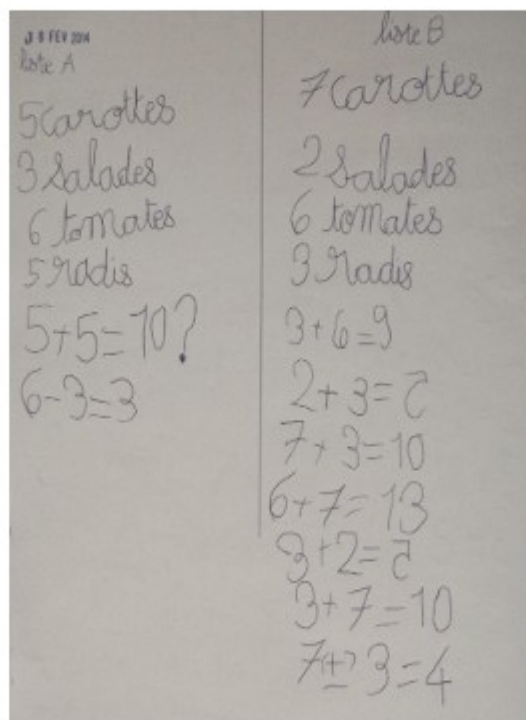 FEV 2014
liste A
5 carottes
3 salades
6 tomates
5 radis
5+5=10?
6-3=3
liste B
7 carottes
2 salades
6 tomates
3 radis
3+6=9
2+3=5
7+3=10
6+7=13
3+2=5
3+7=10
7(+)3=4